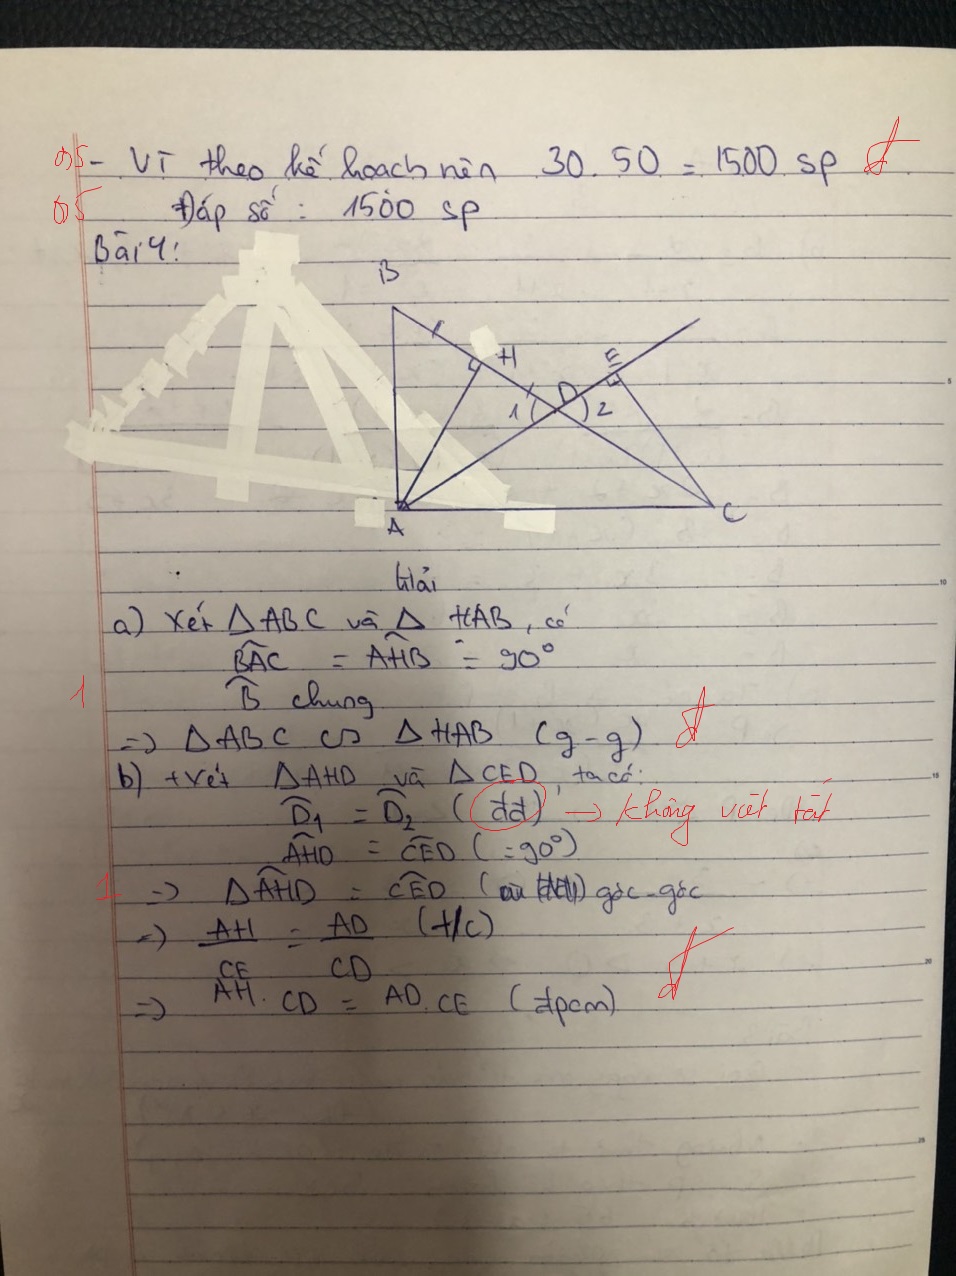 0,5 - Vì theo kế hoạch nên 30.50 = 1500 sp đ
0,5 Đáp số : 1500 sp
Bài 4:
B
H
E
D
1 2
A
C
Giải
a) Xét △ABC và △ HAB, có
BAC = AHB = 90°
1 B chung
=> △ABC ∽ △HAB (g-g) đ
b) +xét △AHD và △CED, ta có:
D1 = D2 (đđ) → không viết tắt
AHD = CED (=90°)
1 => △AHD = CED ( góc-góc
=> AH/CE = AD/CD (t/c)
=> AH. CD = AD.CE (đpcm) đ
5
10
15
20
25